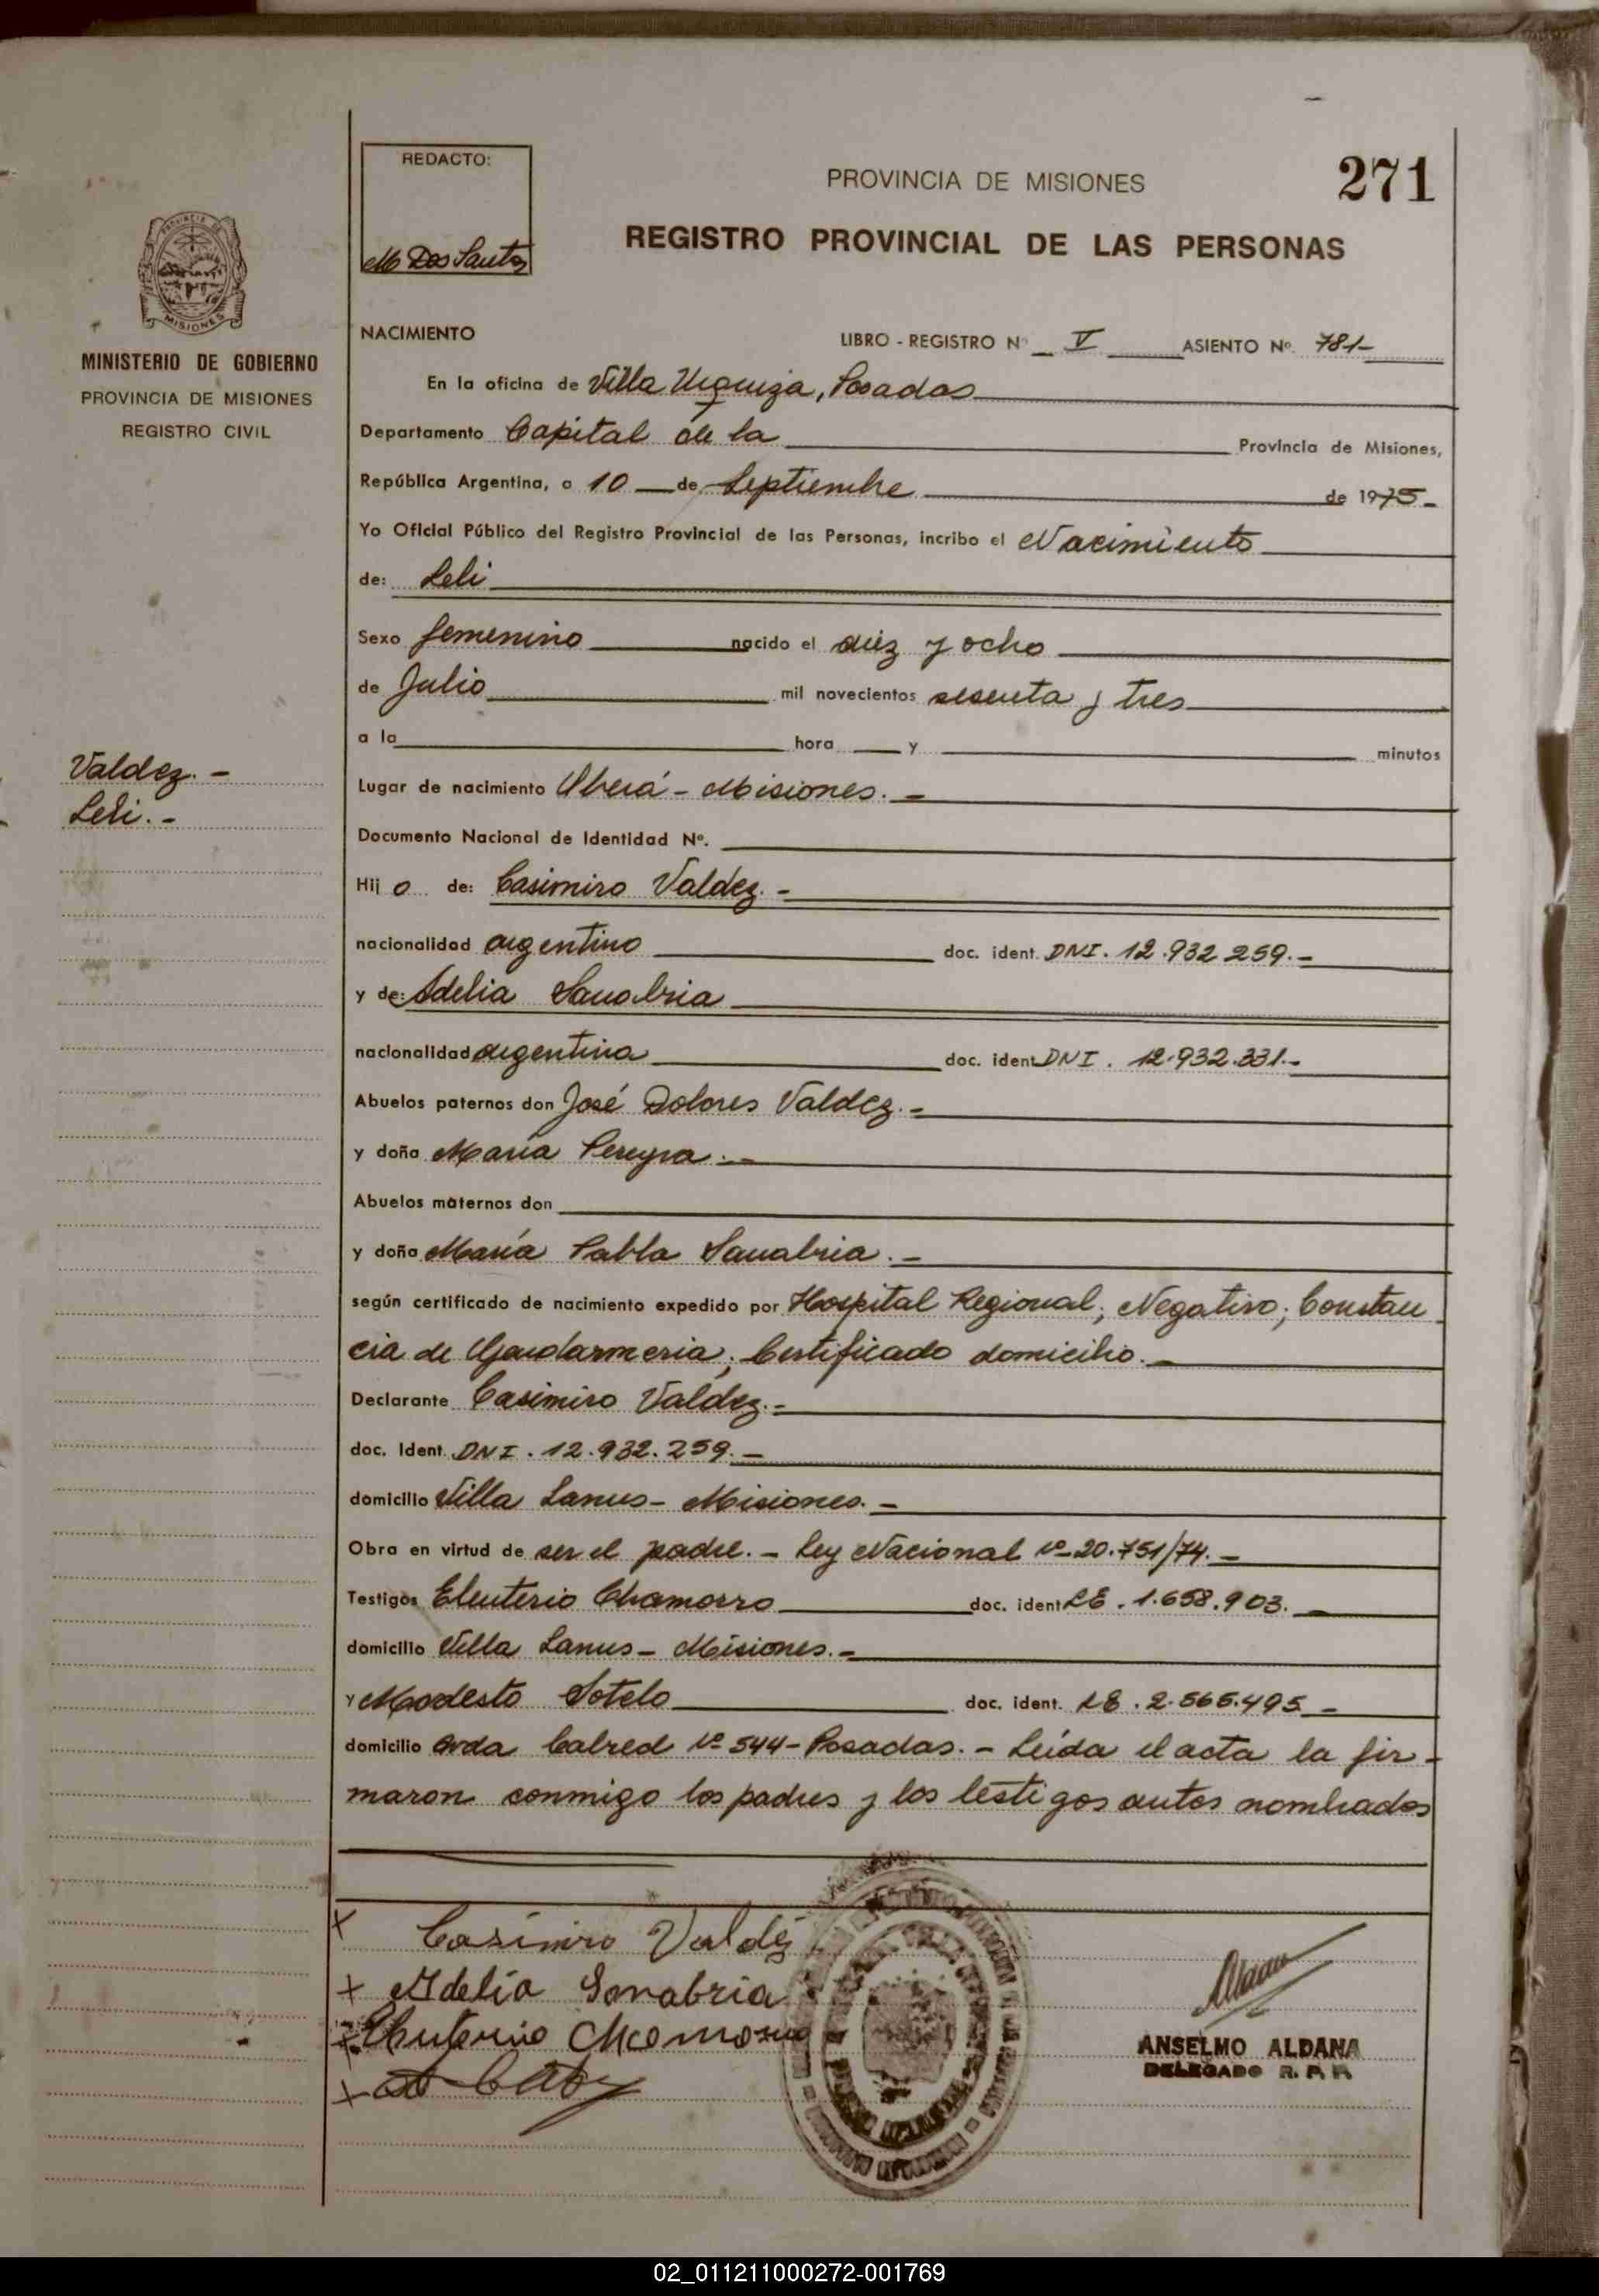 REDACTO:
M Dos Santos
PROVINCIA DE MISIONES
271
REGISTRO PROVINCIAL DE LAS PERSONAS
MISIONES
MINISTERIO DE GOBIERNO
PROVINCIA DE MISIONES
REGISTRO CIVIL
NACIMIENTO
LIBRO - REGISTRO Nº V ASIENTO Nº 781-
En la oficina de Villa Urquiza, Posadas
Departamento Capital de la Provincia de Misiones,
República Argentina, a 10 de Septiembre de 1975-
Yo Oficial Público del Registro Provincial de las Personas, incribo el Nacimiento
de: Leli
Sexo femenino nacido el diez y ocho
de Julio mil novecientos sesenta y tres
a la hora y minutos
Valdez. -
Leli. -
Lugar de nacimiento Oberá - Misiones. -
Documento Nacional de Identidad Nº.
Hij o de: Casimiro Valdez. -
nacionalidad argentino doc. ident. DNI. 12.932.259. -
y de: Adelia Sanabria
nacionalidad argentina doc. ident DNI. 12.932.331. -
Abuelos paternos don José Dolores Valdez. -
y doña María Pereyra. -
Abuelos maternos don
y doña María Pabla Sanabria. -
según certificado de nacimiento expedido por Hospital Regional, Negativo; Constan
cia de Gendarmeria, Certificado domicilio. -
Declarante Casimiro Valdez. -
doc. Ident. DNI. 12.932.259. -
domicilio Villa Lanus - Misiones. -
Obra en virtud de ser el padre. - Ley Nacional Nº 20.751/74. -
Testigos Eleuterio Chamorro doc. ident LE. 1.658.903. -
domicilio Villa Lanus - Misiones. -
y Modesto Sotelo doc. ident. LE. 2.565.495 -
domicilio Avda Cabred Nº 544 - Posadas. - Leida el acta la fir -
maron conmigo los padres y los testigos antes nombrados
x Casimiro Valdez
x Adelia Sonabria
x Eleuterio Chamorro
ANSELMO ALDANA
DELEGADO R. P. P.
02_011211000272-001769